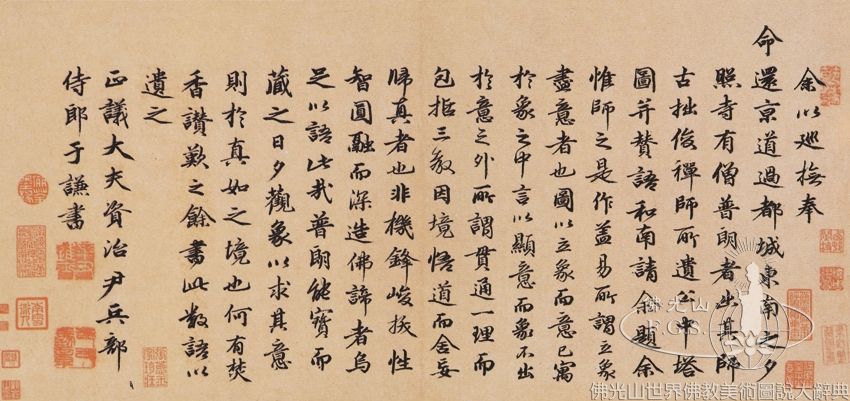 余以巡撫奉
命還京道過都城東南之夕
照寺有僧普朗者出其師
古拙俊禪師所遺公中塔
圖并贊語和南請余題余
惟師之是作蓋易所謂立象
盡意者也圖以立象而意已寓
於象之中言以顯意而象不出
於意之外所謂貫通一理而
包括三教因境悟道而舍妄
歸真者也非機鋒峻拔性
智圓融而深造佛諦者烏
足以語此哉普朗能寶而
藏之日夕觀象以求其意
則於真如之境也何有焚
香讚歎之餘書此數語以
遺之
正議大夫資治尹兵部
侍郎于謙書
佛光山
F.G.S.
佛光山世界佛教美術圖說大辭典